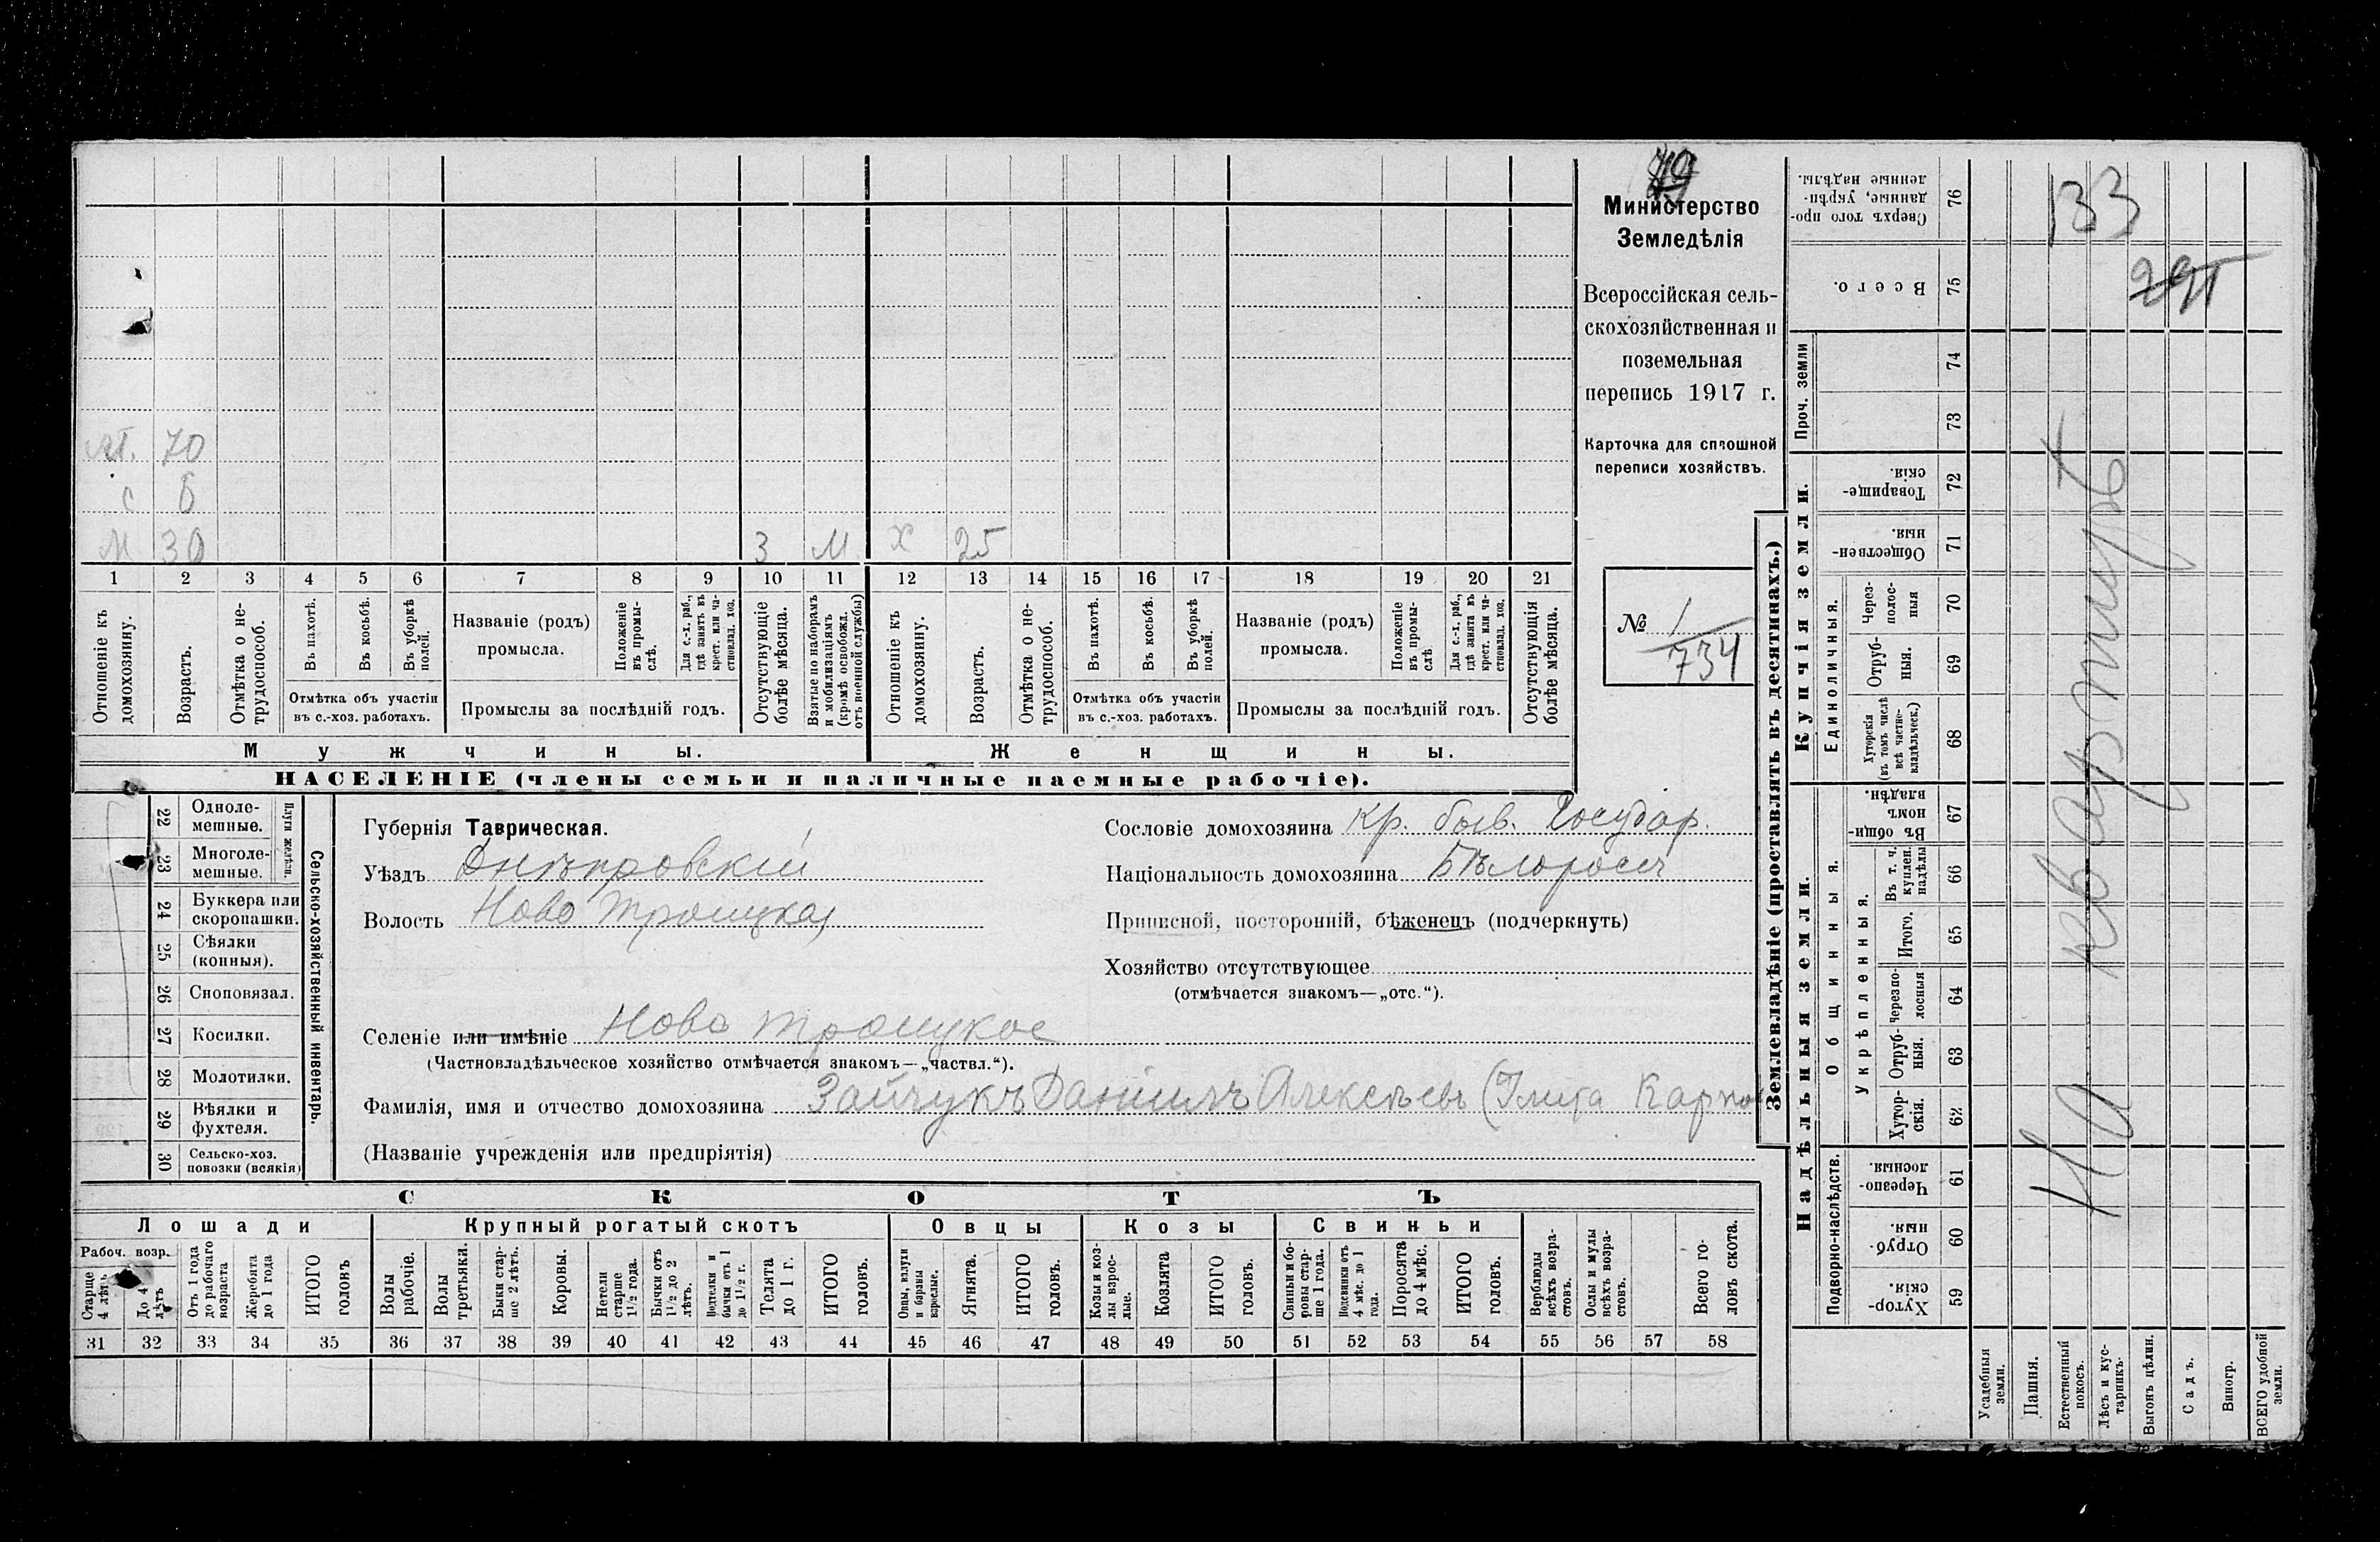 Министерство
Земледѣлія
Всероссійская сель-
скохозяйственная и
поземельная
перепись 1917 г.
Карточка для сплошной
переписи хозяйствъ.
№ 1
734
м. 70
с 6
М 30 3 М Х 25
1 2 3 4 5 6 7 8 9 10 11 12 13 14 15 16 17 18 19 20 21
Отношеніе къ домохозяину.
Возрастъ.
Отмѣтка о не-трудоспособ.
Въ пахотѣ.
Въ косьбѣ.
Въ уборкѣ полей.
Отмѣтка объ участіи въ с.-хоз. работахъ.
Названіе (родъ) промысла.
Положеніе въ промы-слѣ.
Для с.-х. раб., гдѣ занятъ въ крест. или ча-стновлад. хоз.
Промыслы за послѣдній годъ.
Отсутствующіе болѣе мѣсяца.
Взятые по наборамъ и мобилизаціямъ (кромѣ освобожд. отъ военной службы)
Отношеніе къ домохозяину.
Возрастъ.
Отмѣтка о не-трудоспособ.
Въ пахотѣ.
Въ косьбѣ.
Въ уборкѣ полей.
Отмѣтка объ участіи въ с.-хоз. работахъ.
Названіе (родъ) промысла.
Положеніе въ промы-слѣ
Для с.-х. раб., гдѣ занята въ крест. или ча-стновлад. хоз.
Промыслы за послѣдній годъ.
Отсутствующія болѣе мѣсяца.
Мужчины. Женщины.
НАСЕЛЕНІЕ (члены семьи и наличные наемные рабочіе).
22 Одноле-мешные.
23 Многоле-мешные.
Плуги желѣзн.
24 Буккера или скоропашки.
25 Сѣялки (конныя).
26 Сноповязал.
27 Косилки.
28 Молотилки.
29 Вѣялки и фухтеля.
30 Сельско-хоз. повозки (всякія)
Сельско-хозяйственный инвентарь.
Губернія Таврическая.
Уѣздъ Днѣпровскій
Волость Ново Троицкая
Селеніе или имѣніе Ново Троицкое
(Частновладѣльческое хозяйство отмѣчается знакомъ—„частвл.“).
Фамилія, имя и отчество домохозяина Зайчукъ Даніилъ Алексѣевъ (
(Названіе учрежденія или предпріятія)
Сословіе домохозяина кр. быв. Государ.
Національность домохозяина Бѣлороссъ
Приписной, посторонній, бѣженецъ (подчеркнуть)
Хозяйство отсутствующее
(отмѣчается знакомъ—„отс.“).
СКОТЪ
Лошади Крупный рогатый скотъ Овцы Козы Свиньи
Рабоч. возр.
Старше 4 лѣтъ
До 4 лѣтъ
Отъ 1 года до рабочаго возраста
Жеребята до 1 года
ИТОГО головъ
Волы рабочіе.
Волы третьяки.
Быки стар-ше 2 лѣтъ.
Коровы.
Нетели старше 1½ года.
Бычки отъ 1½ до 2 лѣтъ.
бычки отъ 1 до 1½ г.
Телята до 1 г.
ИТОГО головъ.
Овцы, валухи и бараны взрослые.
Ягнята.
ИТОГО головъ.
Козы и коз-лы взрос-лые.
Козлята
ИТОГО головъ.
Свиньи и бо-ровы стар-ше 1 года.
4 мѣс. до 1 года.
Поросята до 4 мѣс.
ИТОГО головъ.
Верблюды всѣхъ возра-стовъ.
Ослы и мулы всѣхъ возра-стовъ.
Всего го-ловъ скота.
31 32 33 34 35 36 37 38 39 40 41 42 43 44 45 46 47 48 49 50 51 52 53 54 55 56 57 58
Землевладѣніе (проставлять въ десятинахъ.)
Надѣльныя земли.
Купчія земли.
Проч. земли
Подворно-наслѣдств.
Общинныя.
Укрѣпленныя.
Единоличныя.
59 Хутор-скія.
60 Отруб-ныя.
61 Черезпо-лосныя.
62 Хутор-скія.
63 Отруб-ныя.
64 Черезпо-лосныя
65 Итого.
66 Въ т. ч. куплен. надѣлы
67 Въ общин-номъ владѣн.
68 Хуторскія (въ томъ числѣ всѣ частно-владѣльческ.)
69 Отруб-ныя.
70 Через-полос-ныя
71 Обществен-ныя.
72 Товарище-скія.
73
74
75 Всего.
76 Сверхъ того про-данные, укрѣп-ленные надѣлы.
Усадебныя земли.
Пашня.
Естественный покосъ.
Лѣсъ и кус-тарникъ.
Выгонъ цѣлин.
Садъ.
Виногр.
ВСЕГО удобной земли.
На квартирѣ
133